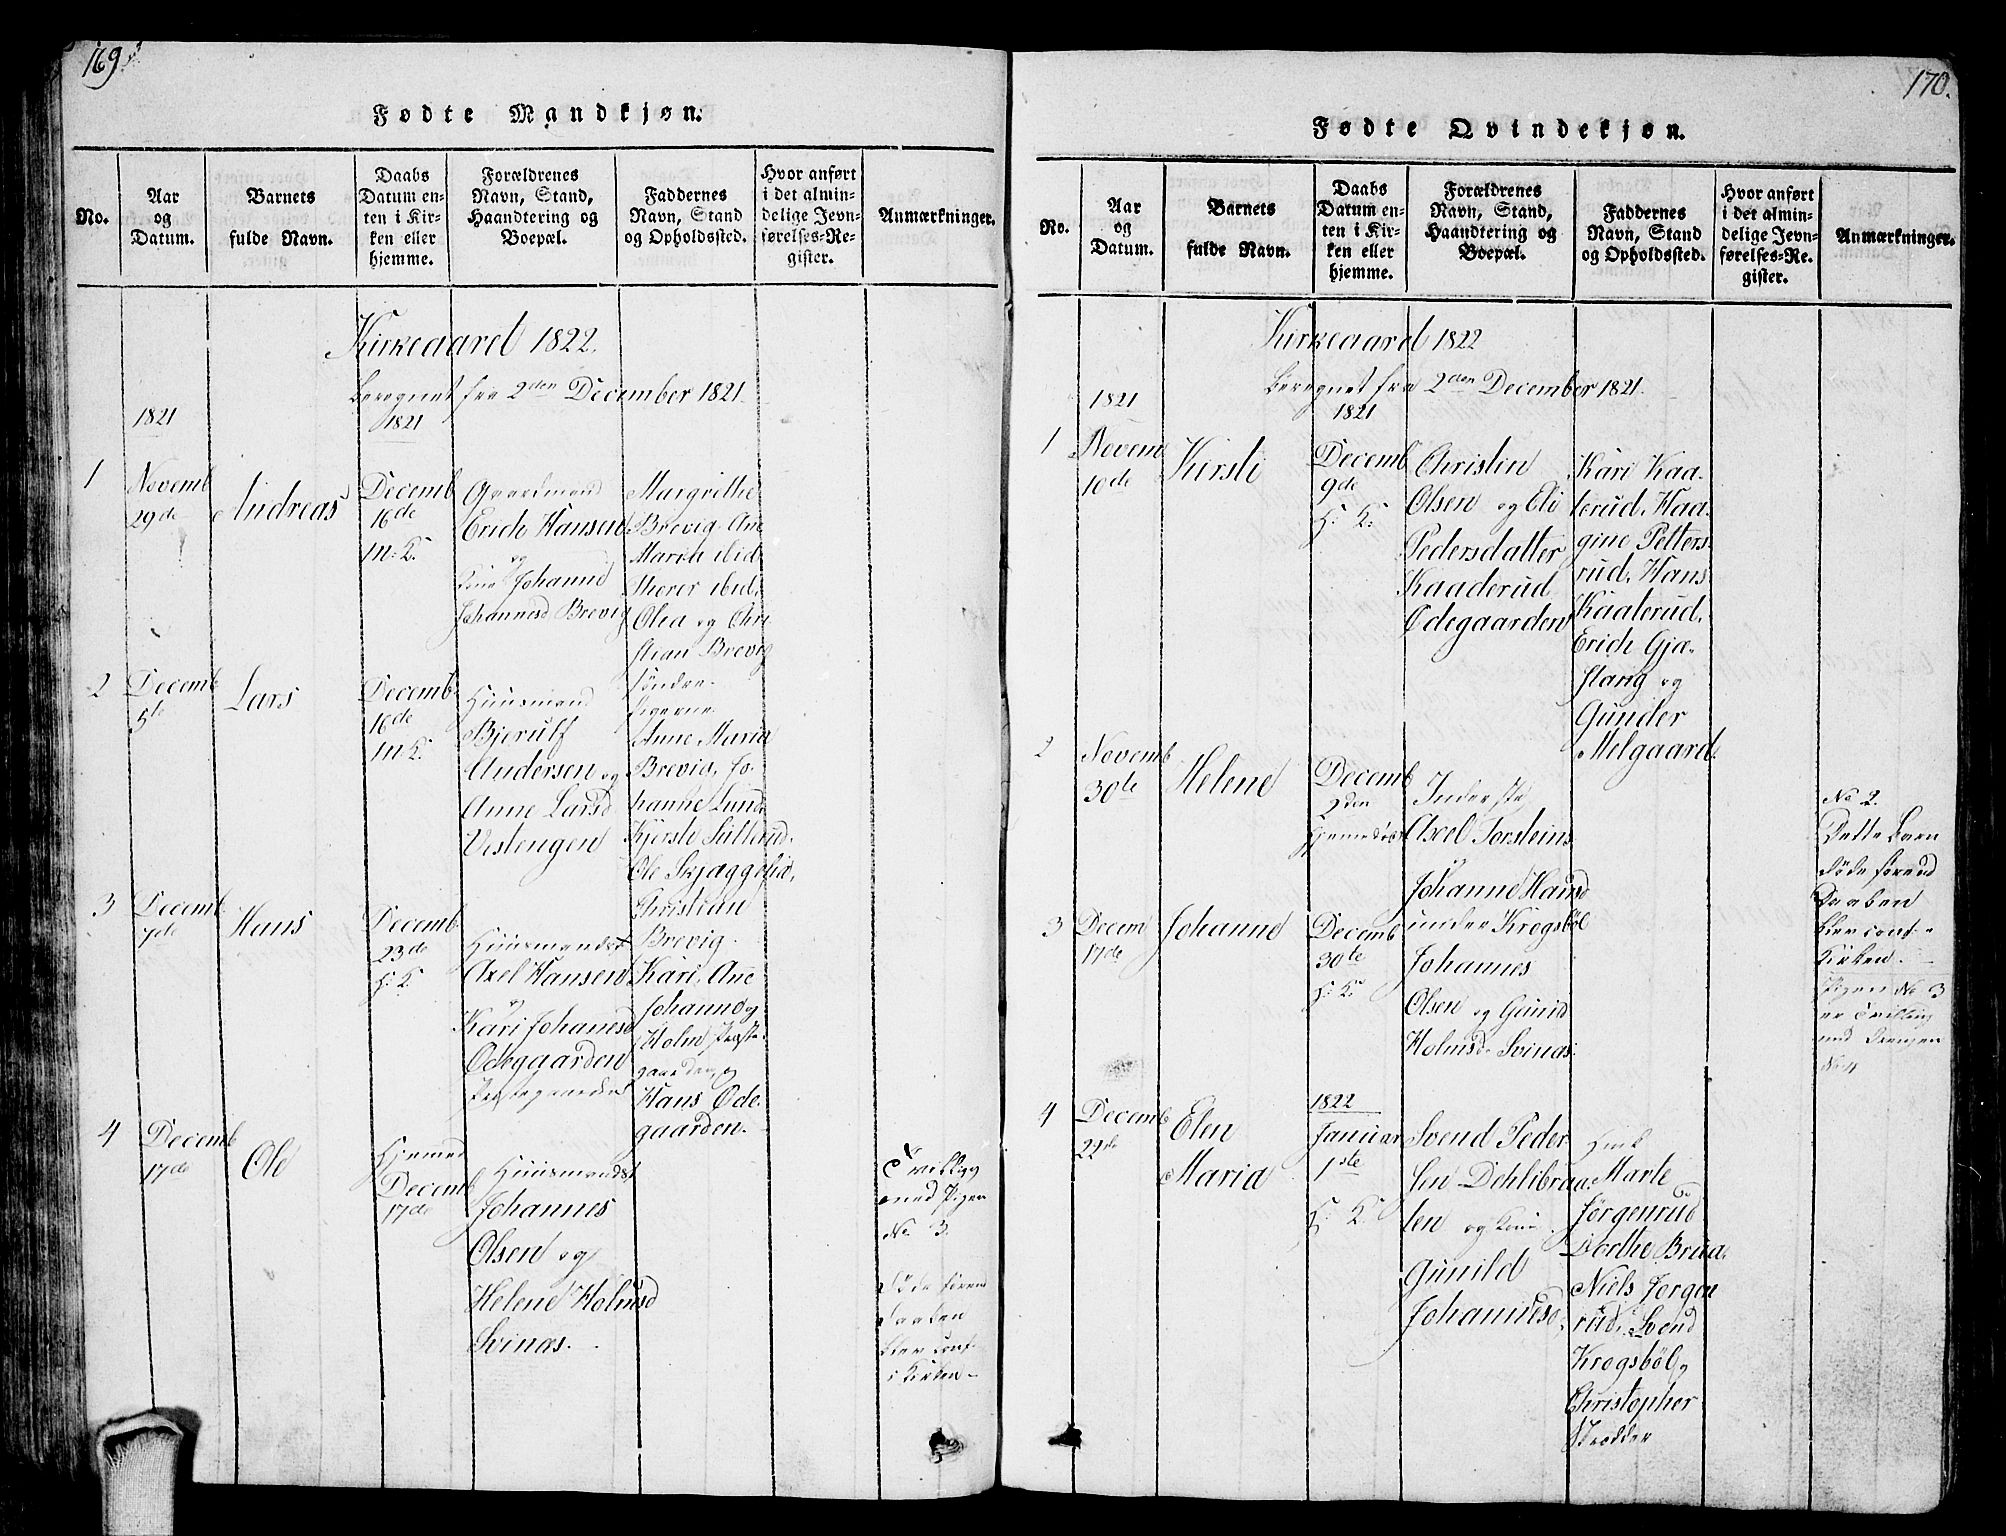 169
Fødte Mandkjøn.
No.
Aar
og
Datum.
Barnets
fulde Navn.
Daabs
Datum en-
ten i Kir-
ken eller
hjemme.
Forældrenes
Navn, Stand,
Haandtering og
Boepæl.
Faddernes
Navn, Stand
og Opholdssted.
Hvor anført
i det almin-
delige Jevn-
førelses-Re-
gister.
Anmærkninger.
Kirkeaaret 1822.
Beregnet fra 2den December 1821.
1821
1821
1
Novemb
29de
Andreas
Decemb
16de
M. K.
Gaardmand
Erich Hansen
og
Kone Johanne
Johannesd Brevig
Margrethe
Brevig, Ane
Maria ibid
ibid,
Olea og Chri
stian Brevig
søndre
2
Decemb
5te
Lars
Decemb
16de
M. K.
Huusmand
Bjerulf
Andersen og
Anne Larsd
Vestengen
Anne Maria
Brevig, Jo-
hanne Lund
Kjersti Sütland
Ole Skjaggestad,
Christian
Brevig.
3
Decemb
7de
Hans
Decemb
23de
H: K.
Huusmandsf
Axel Hansen
og
Kari Johanesd
Odegaarden
Præstegaarden
Kari, Ane
Johanne og
Holm Præste-
gaarden, og
Hans Ode
gaarden.
4
Decemb
17de
Ole
Hjemme
Decemb
17de
Huusmandsf
Johannes
Olsen og
Helene Holmsd
Svinæs.
Tvilling
med Pigen
No. 3.
Døde foren
Daaben
blev conf.
i Kirken
170.
Fødte Qvindekjøn.
No.
Aar
og
Datum.
Barnets
fulde Navn.
Daabs
Datum en-
ten i Kir-
ken eller
hjemme.
Forældrenes
Navn, Stand,
Haandtering og
Boepæl.
Faddernes
Navn, Stand
og Opholdssted.
Hvor anført
i det almin-
delige Jevn-
førelses-Re-
gister.
Anmærkninger.
Kirkeaaret 1822
Beregnet fra 2den December 1821.
1821
1821
1
Novem
10de
Kirsti
Decemb
9de
H: K:
Christen
Olsen og Eli
Pedersdatter
Kaaderud
Ødegaarden
Kari Kaa-
terud, Kaa-
gine Petters-
rud, Hans
Kaaterud,
Erich Gja-
stang og
Gunder
Melgaard.
2
Novemb
30te
Helene
Decemb
2den
Hjemmedøbt
Inderste
Axel Torsteins
og
Johanne Hansd
under Krogsbøl
No 2.
Dette Barn
døde forend
Daaben
blev conf. i
Kirken.
3
Decem
17de
Johanne
Decemb
30te
H: K.
Johannes
Olsen og Gunild
Holmsd. Svinæs.
Pigen No 3
er Tvilling
med Drengen
No. 4
4
Decemb
22de
Elen
Maria
1822
Januar
1ste
H: K.
Svend Peder
sen Dehlibraa
ten og Kone
Gunild
Johannesd.
Marte
Jørgenrud
Dorthe Braa
Niels Jørgen
rud, Svend
Krogsbøl og
Christopher